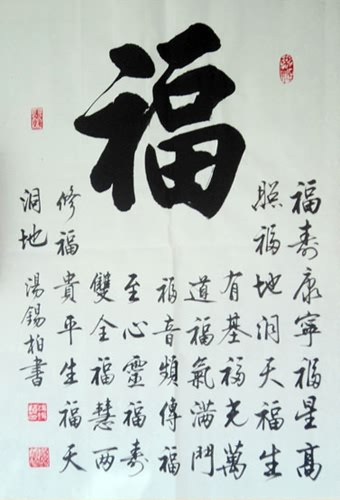 福
福壽康寧福星高
照福地洞天福生
有基福光萬
道福氣滿門
福音頻傳福
至心靈福壽
雙全福慧兩
修福貴平生福天
洞地
湯錫柏書